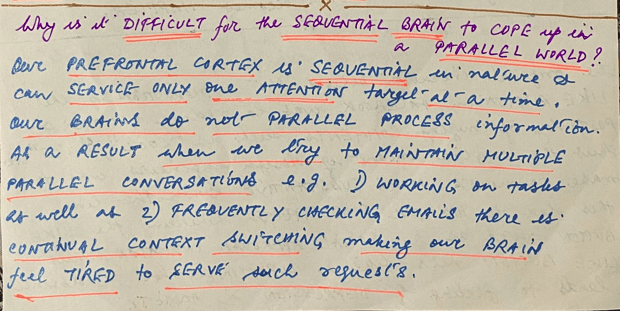 x
Why is it DIFFICULT for the SEQUENTIAL BRAIN to COPE up in
a PARALLEL WORLD?
Our PREFRONTAL CORTEX is SEQUENTIAL in nature &
can SERVICE ONLY one ATTENTION target at a time.
Our BRAINS do not PARALLEL PROCESS information.
As a RESULT when we try to MAINTAIN MULTIPLE
PARALLEL CONVERSATIONS e.g. 1) WORKING on tasks
as well as 2) FREQUENTLY CHECKING EMAILS there is
CONTINUAL CONTEXT SWITCHING making our BRAIN
feel TIRED to SERVE such requests.